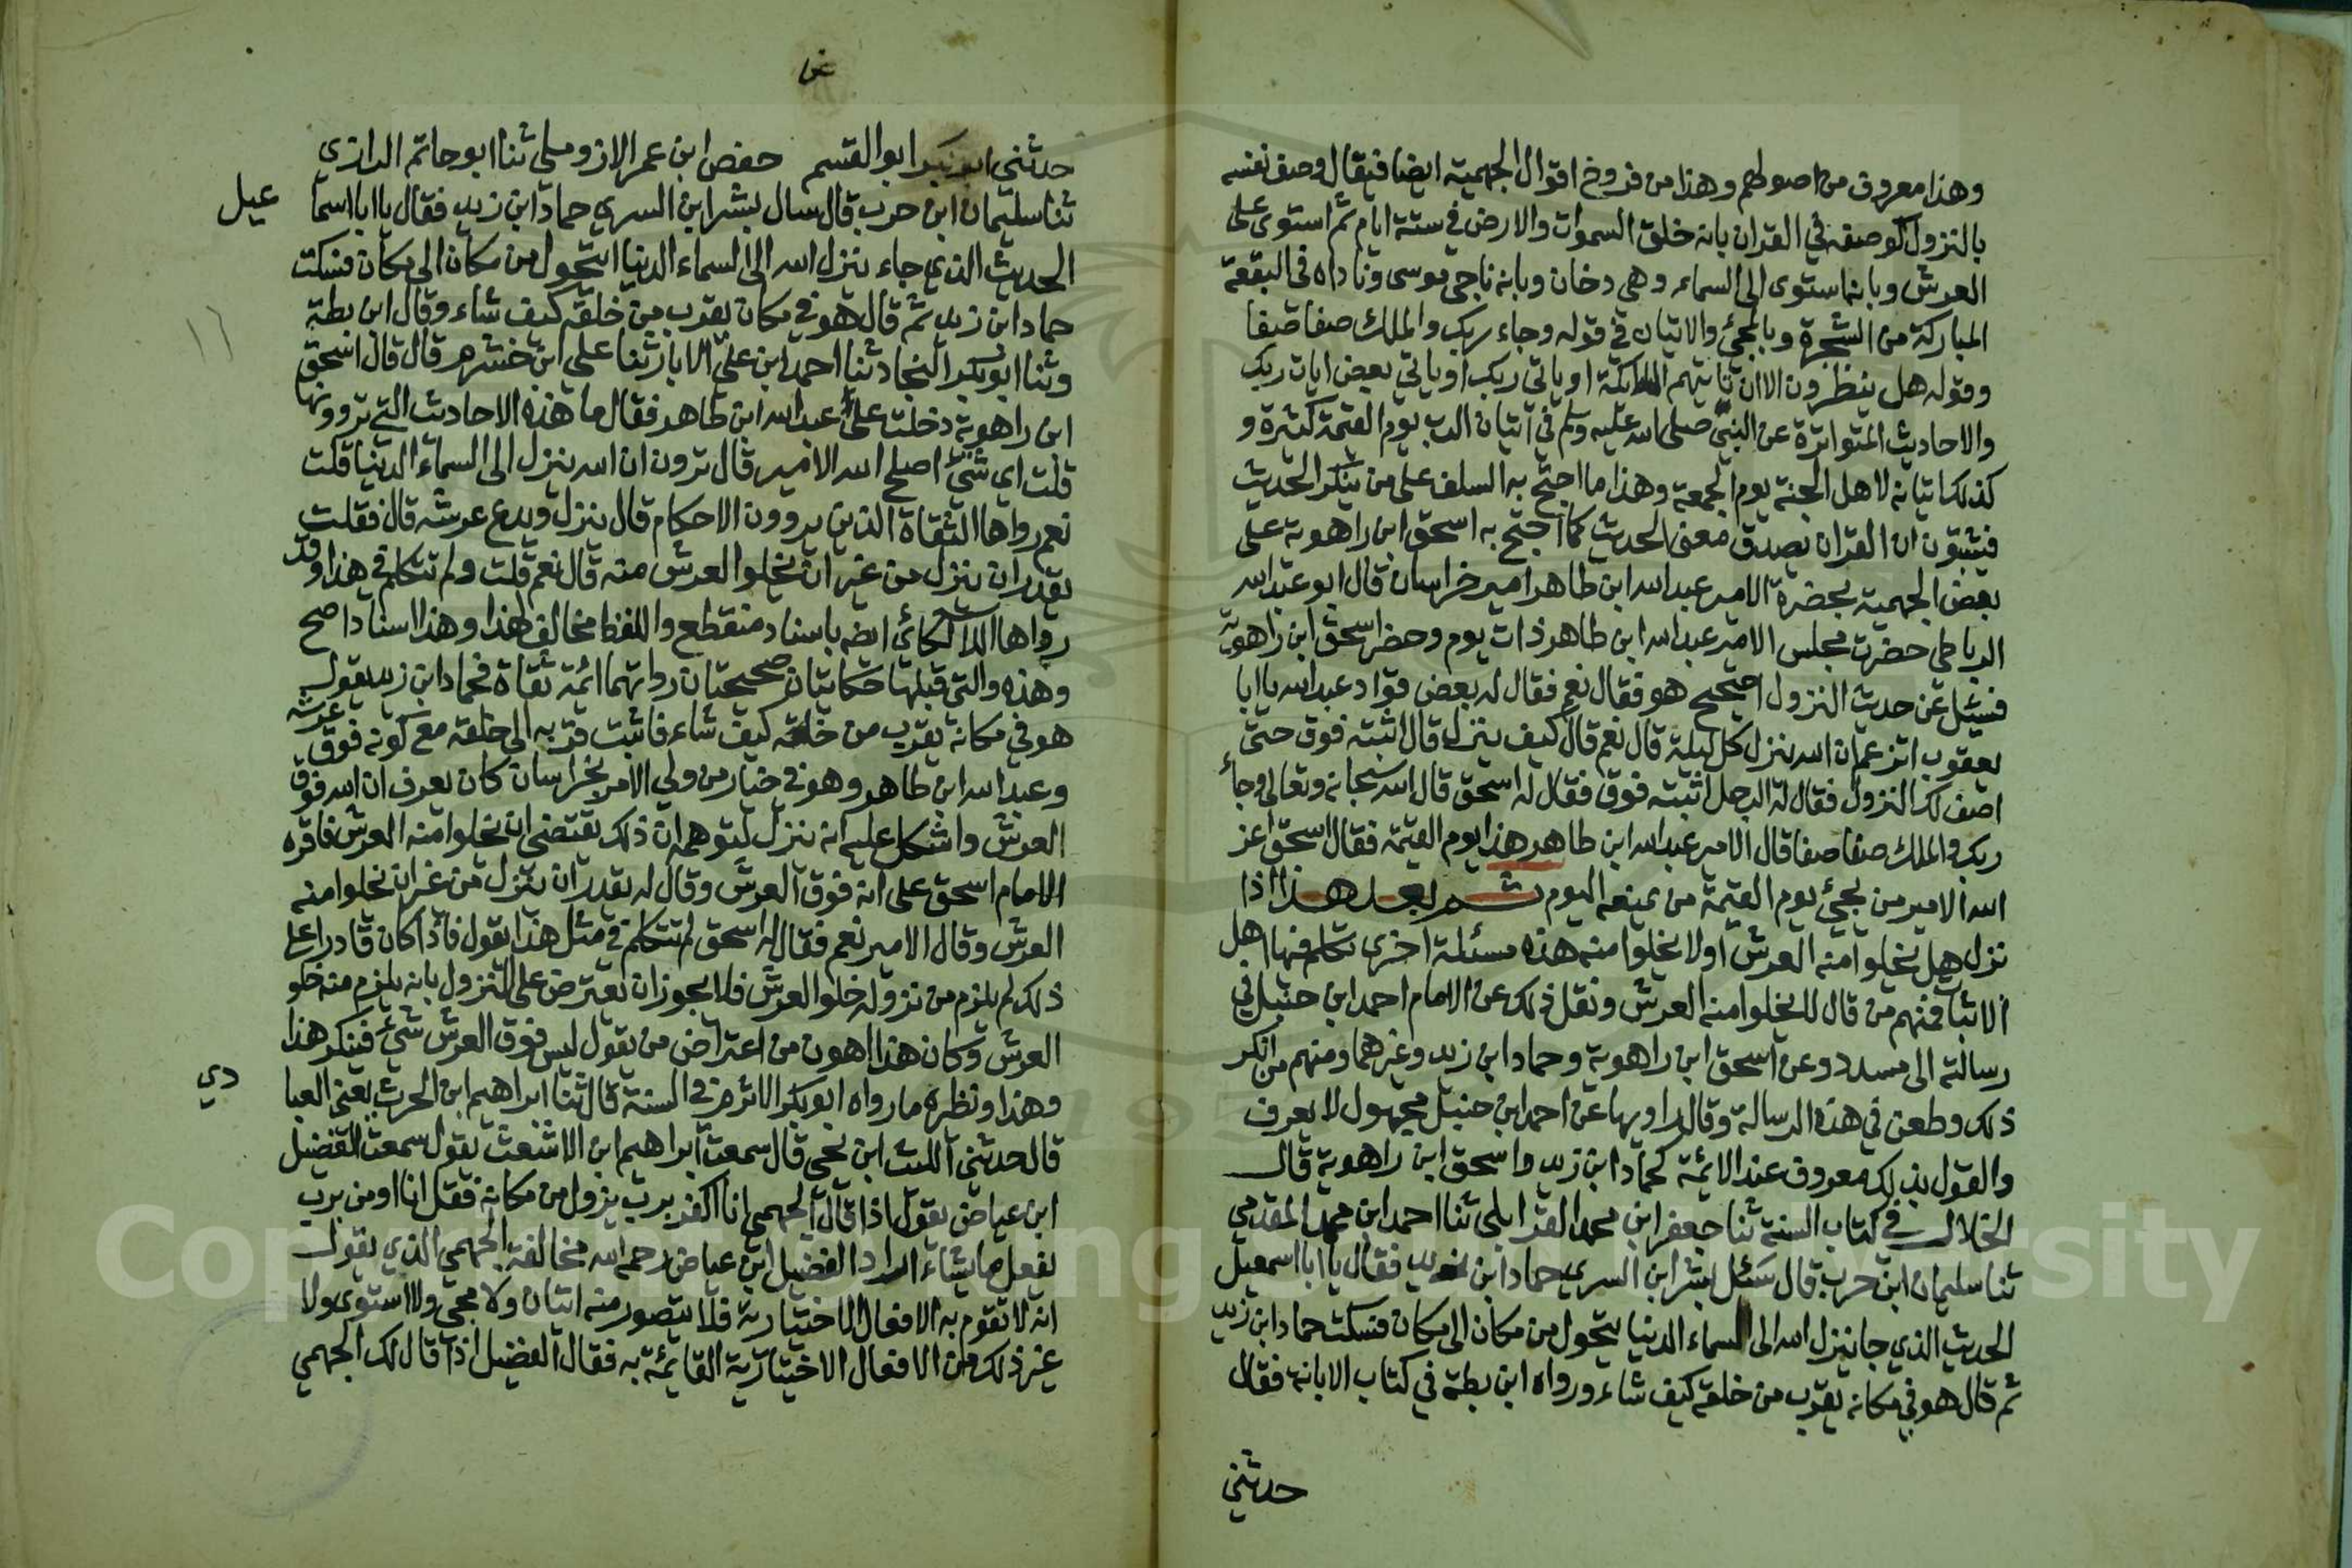 وهذا معروف من اصولهم وهذا من فروخ اقوال الجهمية ايضا فيقال وصف نفسه
بالنزول كوصفه في القران بانه خلق السموات والارض في ستة ايام ثم استوى على
العرش وبانه استوى الى السماء وهي دخان وبانه ناجى موسى وناداه في البقعة
المباركة من الشجرة وبالمجئ والاتيان في قوله وجاء ربك والملك صفا صفا
وقوله هل ينظرون الا ان تاتيهم الملائكة او ياتي ربك او ياتي بعض ايات ربك
والاحاديث المتواترة عن النبي صلى الله عليه وسلم في اتيان الرب يوم القيمة كثيرة و
كذلك اتيانه لاهل الجنة يوم الجمعة وهذا ما احتج به السلف على من ينكر الحديث
فيثبتون ان القران يصدق معنى الحديث كما احتج به اسحق ابن راهوية على
بعض الجهمية بحضرة الامير عبدالله ابن طاهر امير خراسان قال ابو عبدالله
الرباطي حضرت مجلس الامير عبدالله ابن طاهر ذات يوم وحضر اسحق ابن راهوية
فسئل عن حديث النزول اصحيح هو فقال نعم فقال له بعض قواد عبدالله يا ابا
يعقوب اتزعم ان الله ينزل كل ليلة قال نعم قال كيف ينزل قال اثبته فوق حتى
اصف لك النزول فقال له الرجل اثبته فوق فقال له اسحق قال الله سبحانه وتعالى وجاء
ربك والملك صفا صفا قال الامير عبدالله ابن طاهر هذا يوم القيمة فقال اسحق اعز
الله الامير من يجئ يوم القيمة من يمنعه اليوم ثم بعد هذا اذا
نزل هل يخلوا منه العرش اولا يخلوا منه هذه مسئلة اخرى تكلم فيها اهل
الاثبا فمنهم من قال لا يخلوا منه العرش ونقل ذلك عن الامام احمد ابن حنبل في
رسالته الى مسدد وعن اسحق ابن راهوية وحماد ابن زيد وغيرهما ومنهم من انكر
ذلك وطعن في هذه الرسالة وقال راويها عن احمد ابن حنبل مجهول لا يعرف
والقول بذلك معروف عند الائمة كحماد ابن زيد واسحق ابن راهوية قال
الخلال في كتاب السنة ثنا جعفر ابن محمد الفريابلي ثنا احمد ابن محمد المقدمي
ثنا سليمان ابن حرب قال سئل بشر ابن السري حماد ابن زيد فقال يا ابا اسمعيل
الحديث الذي جا ينزل الله الى السماء الدنيا يتحول من مكان الى مكان فسكت حماد ابن زيد
ثم قال هو في مكانه يقرب من خلقه كيف شاء ورواه ابن بطة في كتاب الابانة فقال
حدثني
حدثني ابو القسم حفص ابن عمر الازدملي ثنا ابو حاتم الرازي
ثنا سليمان ابن حرب قال سال بشر ابن السري حماد ابن زيد فقال يا ابا اسما عيل
الحديث الذي جاء ينزل الله الى السماء الدنيا ايتحول من مكان الى مكان فسكت
حماد ابن زيد ثم قال هو في مكان يقرب من خلقه كيف شاء وقال ابن بطة
وثنا ابوبكر النجاد ثنا احمد ابن علي الابار ثنا علي ابن خشرم قال قال اسحق
ابن راهوية دخلت على عبدالله ابن طاهر فقال ما هذه الاحاديث التي تروونها
قلت اي شئ اصلح الله الامير قال ترون ان الله ينزل الى السماء الدنيا قلت
نعم رواها الثقاة الذين يروون الاحكام قال ينزل ويدع عرشه قال فقلت
يقدر ان ينزل من غير ان يخلوا العرش منه قال نعم قلت ولم تتكلم في هذا وقد
رواها اللالكائي ايضه باسناد منقطع واللفظ مخالف لهذا وهذا اسناد اصح
وهذه والتي قبلها حكايتان صحيحتان رواتهما ائمة ثقاة فحماد ابن زيد يقول
هو في مكانه يقرب من خلقه كيف شاء فاثبت قربه الى خلقه مع كونه فوق عرشه
وعبدالله ابن طاهر وهو في خيار من ولي الامر بخراسان كان يعرف ان الله فوق
العرش واشكل عليه انه ينزل لتوهمه ان ذلك يقتضي ان يخلوا منه العرش فاقره
الامام اسحق على انه فوق العرش وقال له يقدر ان ينزل من غير ان يخلوا منه
العرش وقال الامير نعم فقال له اسحق لم تتكلم في مثل هذا يقول فاذا كان قادرا على
ذلك لم يلزم من نزوله خلو العرش فلا يجوز ان يعترض على النزول بانه يلزم منه خلو
العرش وكان هذا اهون من اعتراض من يقول ليس فوق العرش شئ فينكر هذا
وهذا ونظيره ما رواه ابوبكر الاثرم في السنة قال ثنا ابراهيم ابن الحرث يعني العبا دي
قال حدثني الليث ابن يحي قال سمعت ابراهيم ابن الاشعث يقول سمعت الفضيل
ابن عياض يقول اذا قال الجهمي انا اكفر برب يزول من مكانه فقل انا اومن برب
يفعل ما يشاء اراد الفضيل ابن عياض رحمه الله مخالفة الجهمي الذي يقول
انه لا تقوم به الافعال الاختيارية فلا يتصور منه اتيان ولا مجي ولا استوى ولا
غير ذلك من الافعال الاختيارية القايمة به فقال الفضيل اذا قال لك الجهمي